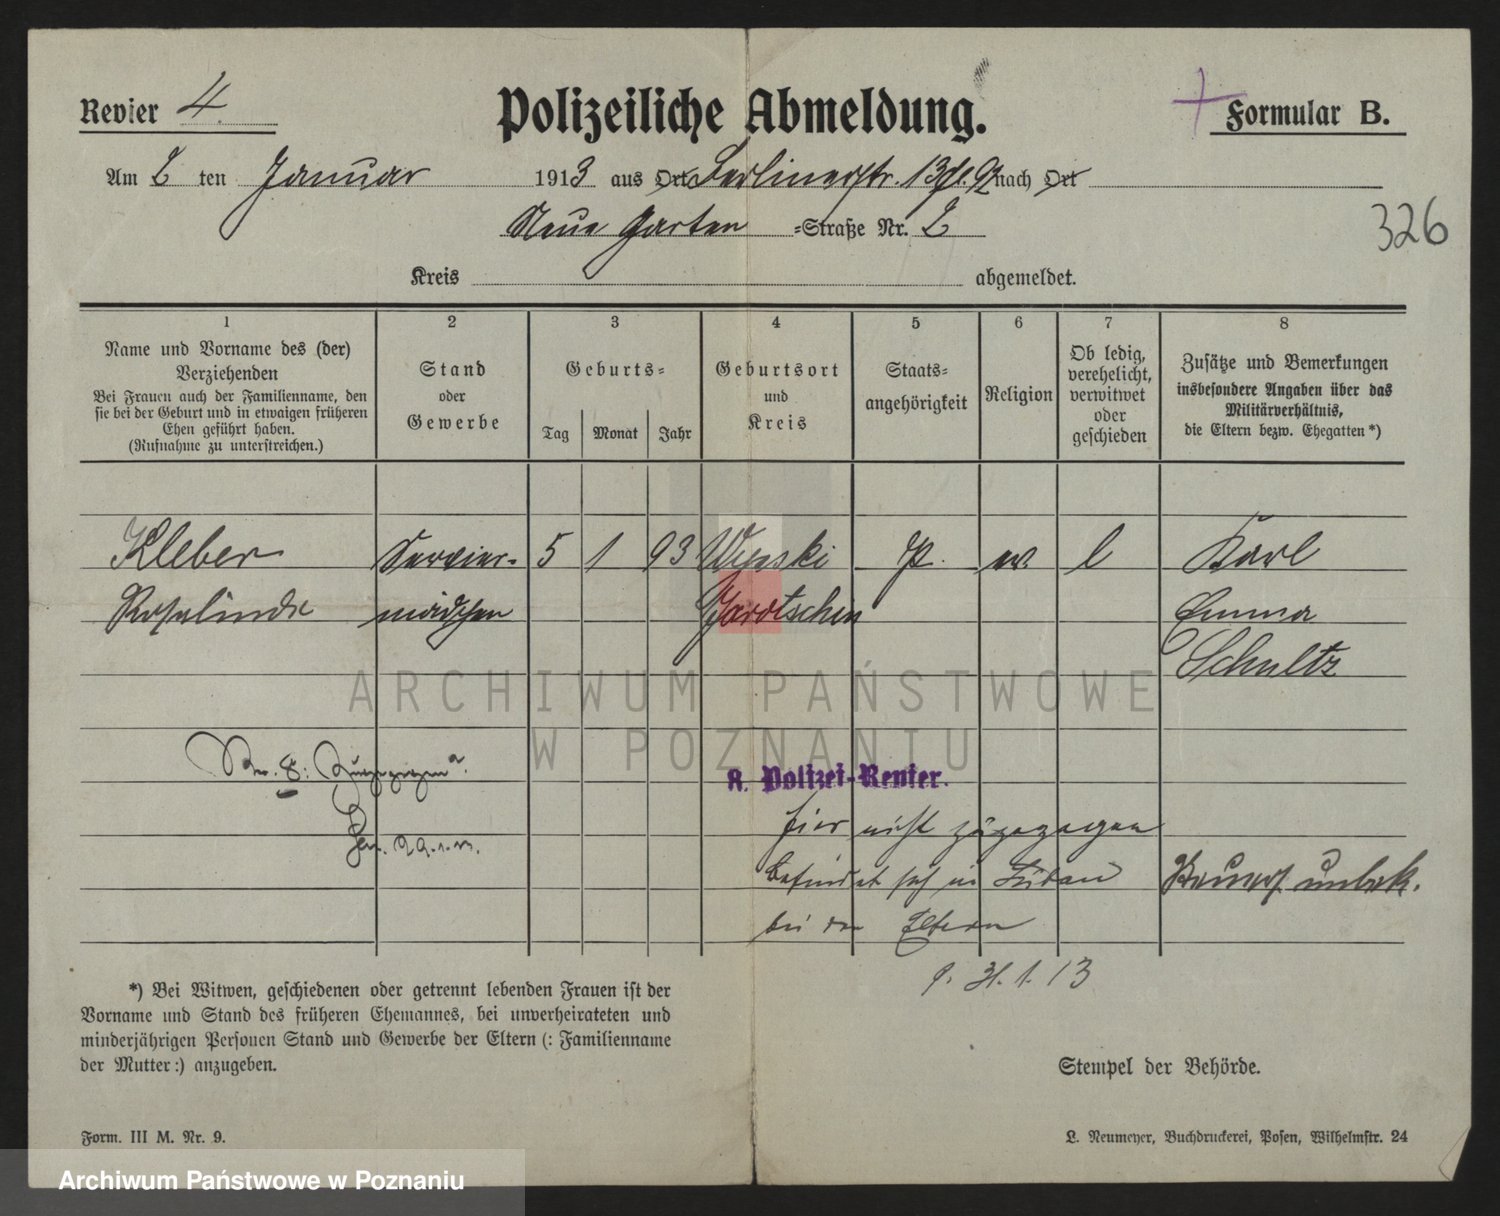 Revier 4.
Polizeiliche Abmeldung.
Formular B.
Am 2 ten Januar 1913 aus Ort Berlinerstr. 13 nach Ort
Neue Garten =Straße Nr. 2
326
Kreis abgemeldet.
1 2 3 4 5 6 7 8
Name und Vorname des (der)
Verziehenden
Bei Frauen auch der Familienname, den
sie bei der Geburt und in etwaigen früheren
Ehen geführt haben.
(Rufname zu unterstreichen.)
Stand
oder
Gewerbe
Geburts=
Tag Monat Jahr
Geburtsort
und
Kreis
Staats=
angehörigkeit
Religion
Ob ledig,
verehelicht,
verwitwet
oder
geschieden
Zusätze und Bemerkungen
insbesondere Angaben über das
Militärverhältnis,
die Eltern bezw. Ehegatten *)
Kleber Servier- 5 1 93 P. l Karl
Rosalinde mädchen Jarotschin Emma
Schultz
ARCHIWUM PAŃSTWOWE
W POZNANIU
8. Polizei-Revier.
hier nicht zugezogen
befindet sich in
bei den Eltern
unbek.
31.1.13
*) Bei Witwen, geschiedenen oder getrennt lebenden Frauen ist der
Vorname und Stand des früheren Ehemannes, bei unverheirateten und
minderjährigen Personen Stand und Gewerbe der Eltern (: Familienname
der Mutter :) anzugeben.
Stempel der Behörde.
Form. III M. Nr. 9.
L. Neumeyer, Buchdruckerei, Posen, Wilhelmstr. 24
Archiwum Państwowe w Poznaniu